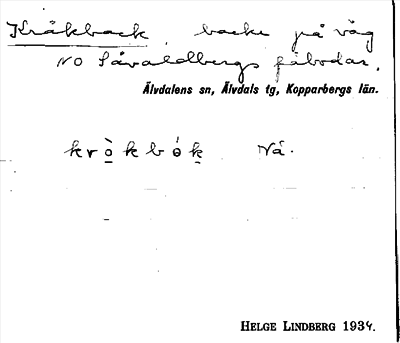 Kråkback, backe på väg
NO Såvaldbergs fäbodar.
Älvdalens sn, Älvdals tg, Kopparbergs län.
krò̱kbó̱k Nå.
HELGE LINDBERG 1934.